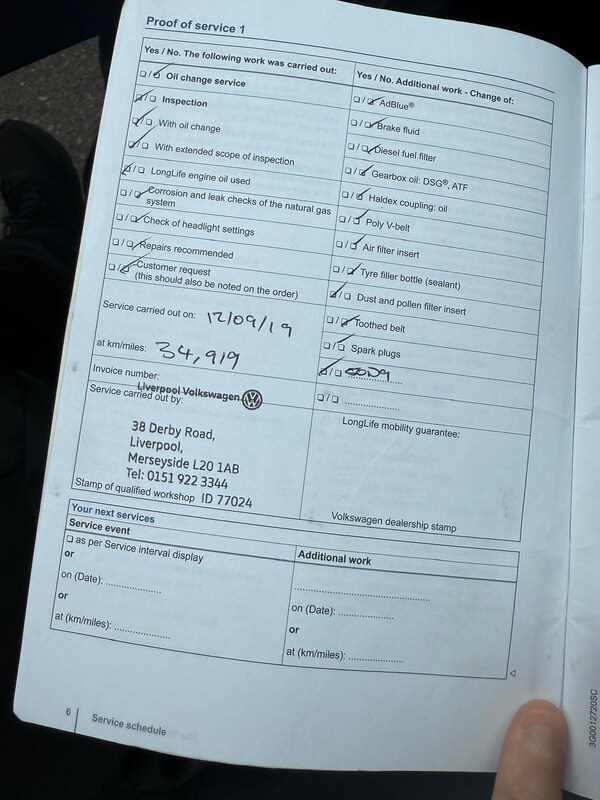 Proof of service 1
Yes / No. The following work was carried out:
❏ / ❏ Oil change service
❏ / ❏ Inspection
❏ / ❏ With oil change
❏ / ❏ With extended scope of inspection
❏ / ❏ LongLife engine oil used
❏ / ❏ Corrosion and leak checks of the natural gas
system
❏ / ❏ Check of headlight settings
❏ / ❏ Repairs recommended
❏ / ❏ Customer request
(this should also be noted on the order)
Service carried out on: 12/09/19
at km/miles: 34,919
Invoice number:
Liverpool Volkswagen
Service carried out by:
38 Derby Road,
Liverpool,
Merseyside L20 1AB
Tel: 0151 922 3344
Stamp of qualified workshop ID 77024
Yes / No. Additional work - Change of:
❏ / ❏ AdBlue®
❏ / ❏ Brake fluid
❏ / ❏ Diesel fuel filter
❏ / ❏ Gearbox oil: DSG®, ATF
❏ / ❏ Haldex coupling: oil
❏ / ❏ Poly V-belt
❏ / ❏ Air filter insert
❏ / ❏ Tyre filler bottle (sealant)
❏ / ❏ Dust and pollen filter insert
❏ / ❏ Toothed belt
❏ / ❏ Spark plugs
❏ / ❏
❏ / ❏ ..................
LongLife mobility guarantee:
Volkswagen dealership stamp
Your next services
Service event
❏ as per Service interval display
or
on (Date): ..................
or
at (km/miles): ..................
Additional work
.............................................
on (Date): ..................
or
at (km/miles): ..................
6 Service schedule
3G0012720SC